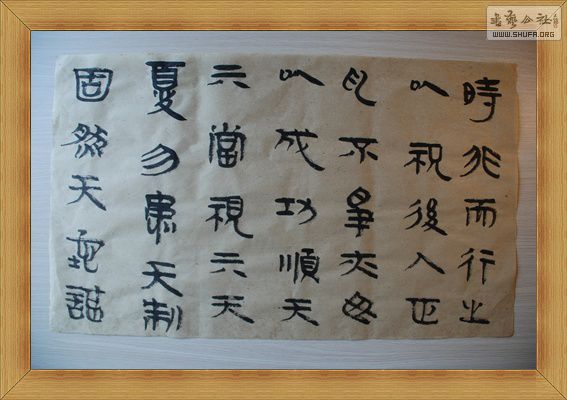 書藝公社
WWW.SHUFA.ORG
時非而行之
以視後人正
不爭亦毋
以成功順天
亦當視亦天
夏勿天制
固然天地